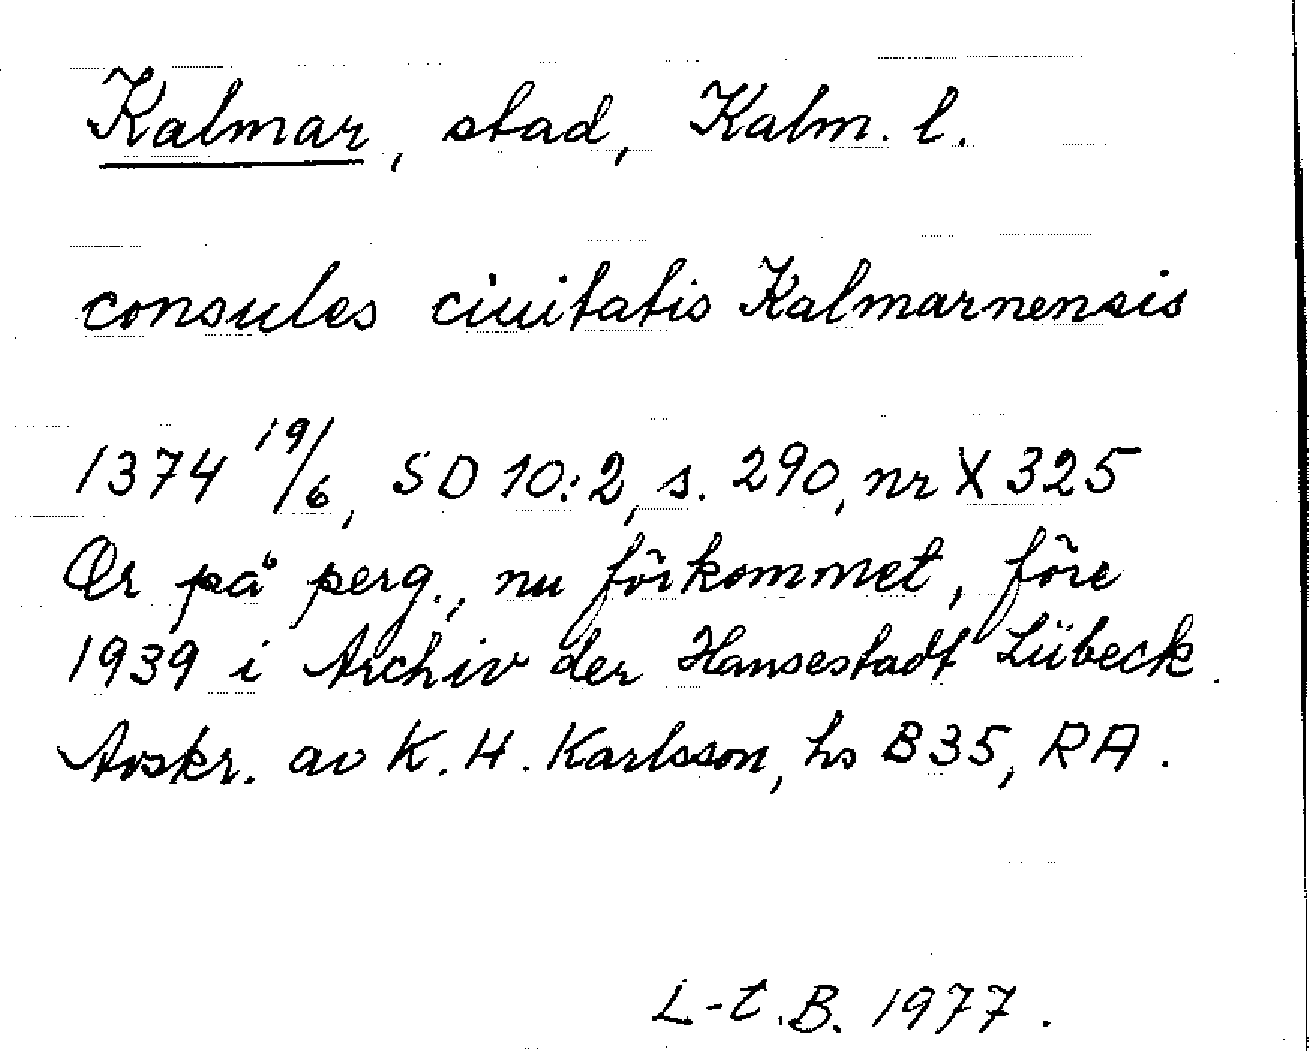 Kalmar, stad, Kalm. l.
consules ciuitatis Kalmarnensis
1374 19/6, SD 10:2, s. 290, nr X 325
Or på perg., nu förkommet, före
1939 i Archiv der Hansestadt Lübeck.
Avskr. av K. H. Karlsson, hs B 35, RA.
L-E.B. 1977.